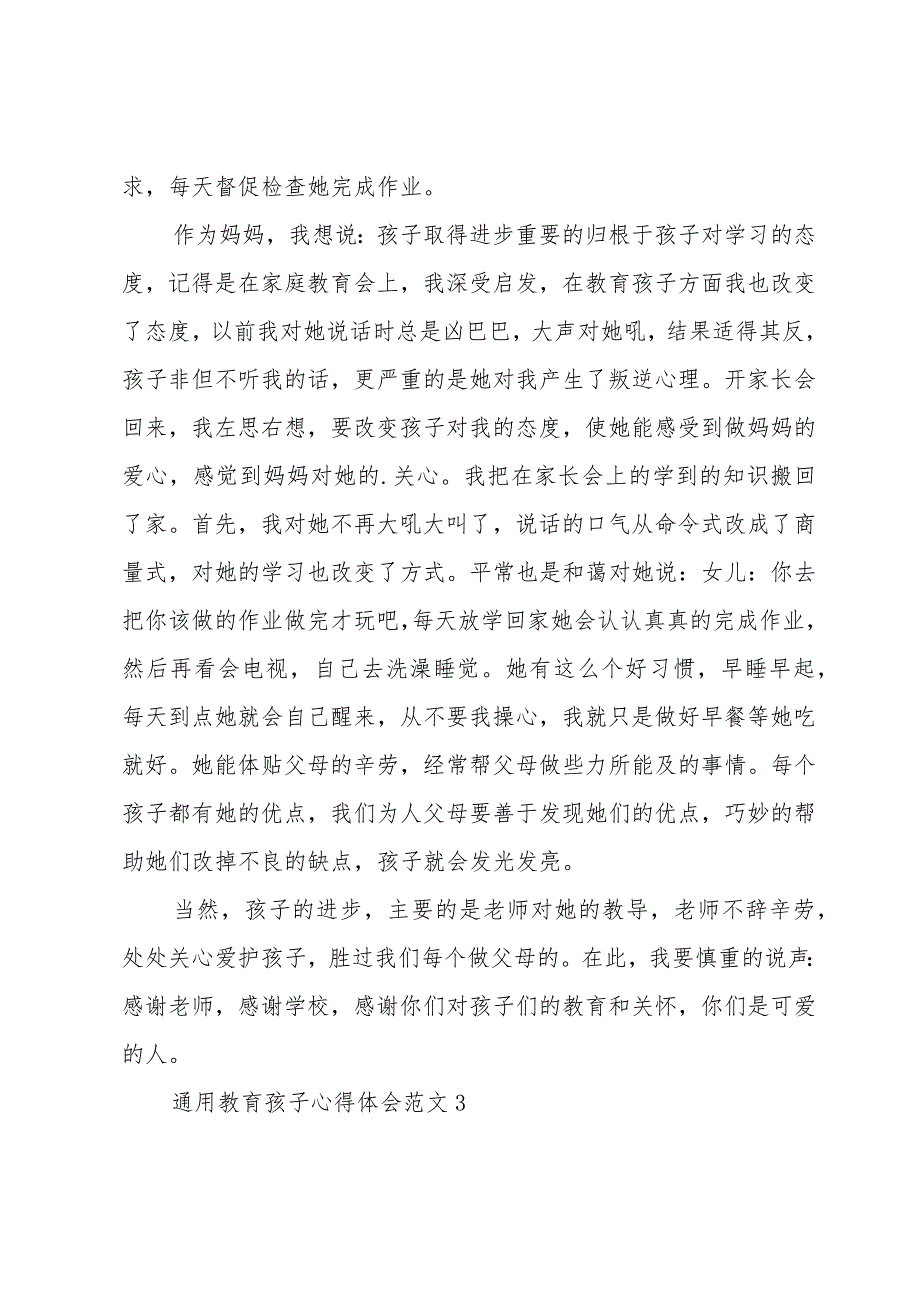 求，每天督促检查她完成作业。
作为妈妈，我想说：孩子取得进步重要的归根于孩子对学习的态
度，记得是在家庭教育会上，我深受启发，在教育孩子方面我也改变
了态度，以前我对她说话时总是凶巴巴，大声对她吼，结果适得其反，
孩子非但不听我的话，更严重的是她对我产生了叛逆心理。开家长会
回来，我左思右想，要改变孩子对我的态度，使她能感受到做妈妈的
爱心，感觉到妈妈对她的.关心。我把在家长会上的学到的知识搬回
了家。首先，我对她不再大吼大叫了，说话的口气从命令式改成了商
量式，对她的学习也改变了方式。平常也是和蔼对她说：女儿：你去
把你该做的作业做完才玩吧，每天放学回家她会认认真真的完成作业，
然后再看会电视，自己去洗澡睡觉。她有这么个好习惯，早睡早起，
每天到点她就会自己醒来，从不要我操心，我就只是做好早餐等她吃
就好。她能体贴父母的辛劳，经常帮父母做些力所能及的事情。每个
孩子都有她的优点，我们为人父母要善于发现她们的优点，巧妙的帮
助她们改掉不良的缺点，孩子就会发光发亮。
当然，孩子的进步，主要的是老师对她的教导，老师不辞辛劳，
处处关心爱护孩子，胜过我们每个做父母的。在此，我要慎重的说声：
感谢老师，感谢学校，感谢你们对孩子们的教育和关怀，你们是可爱
的人。
通用教育孩子心得体会范文3